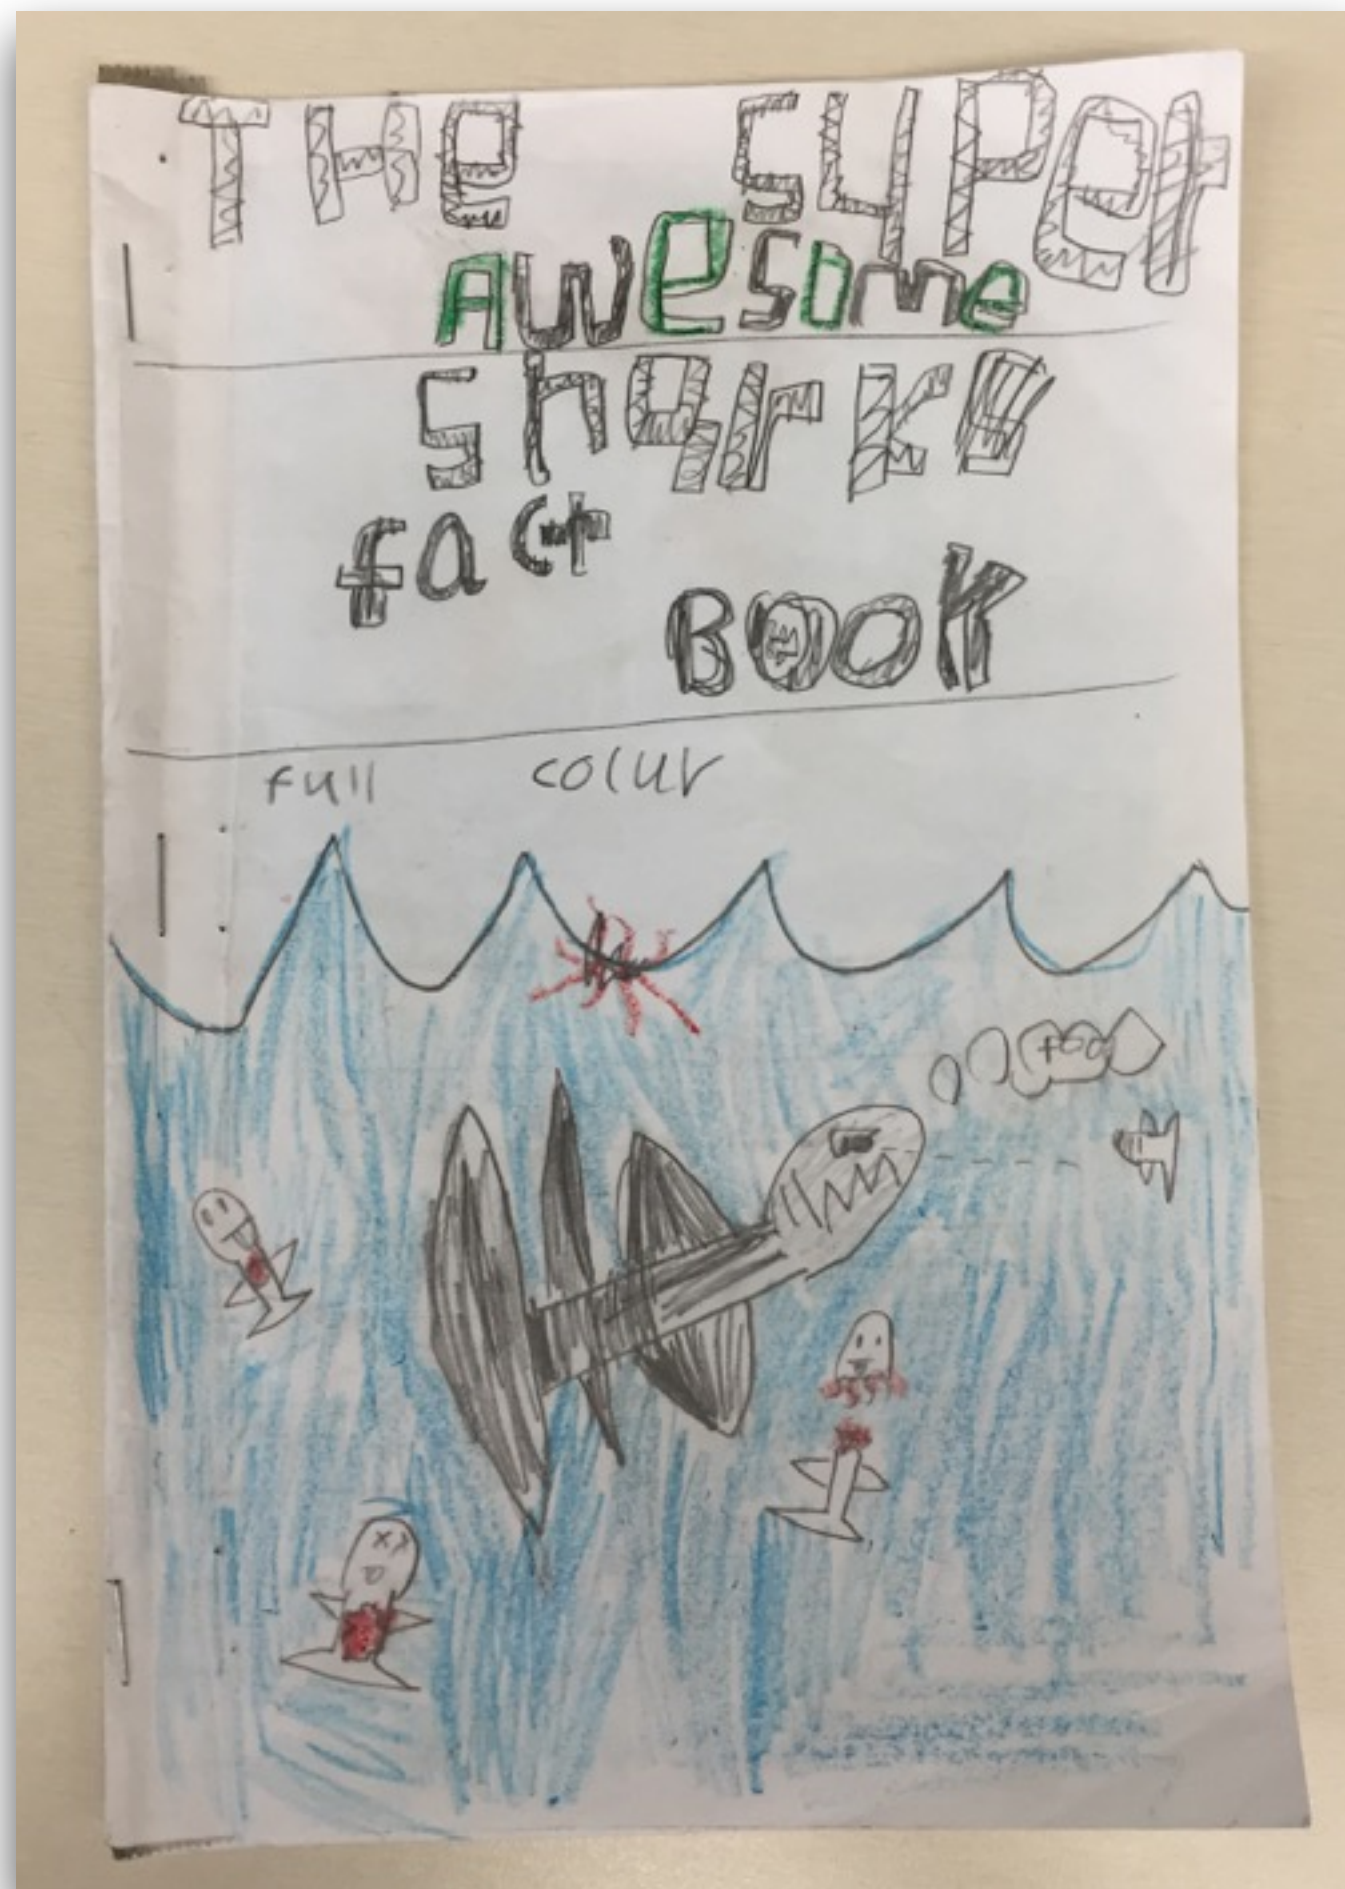 THe super
Awesome
sharks
fact
BOOK
full colur